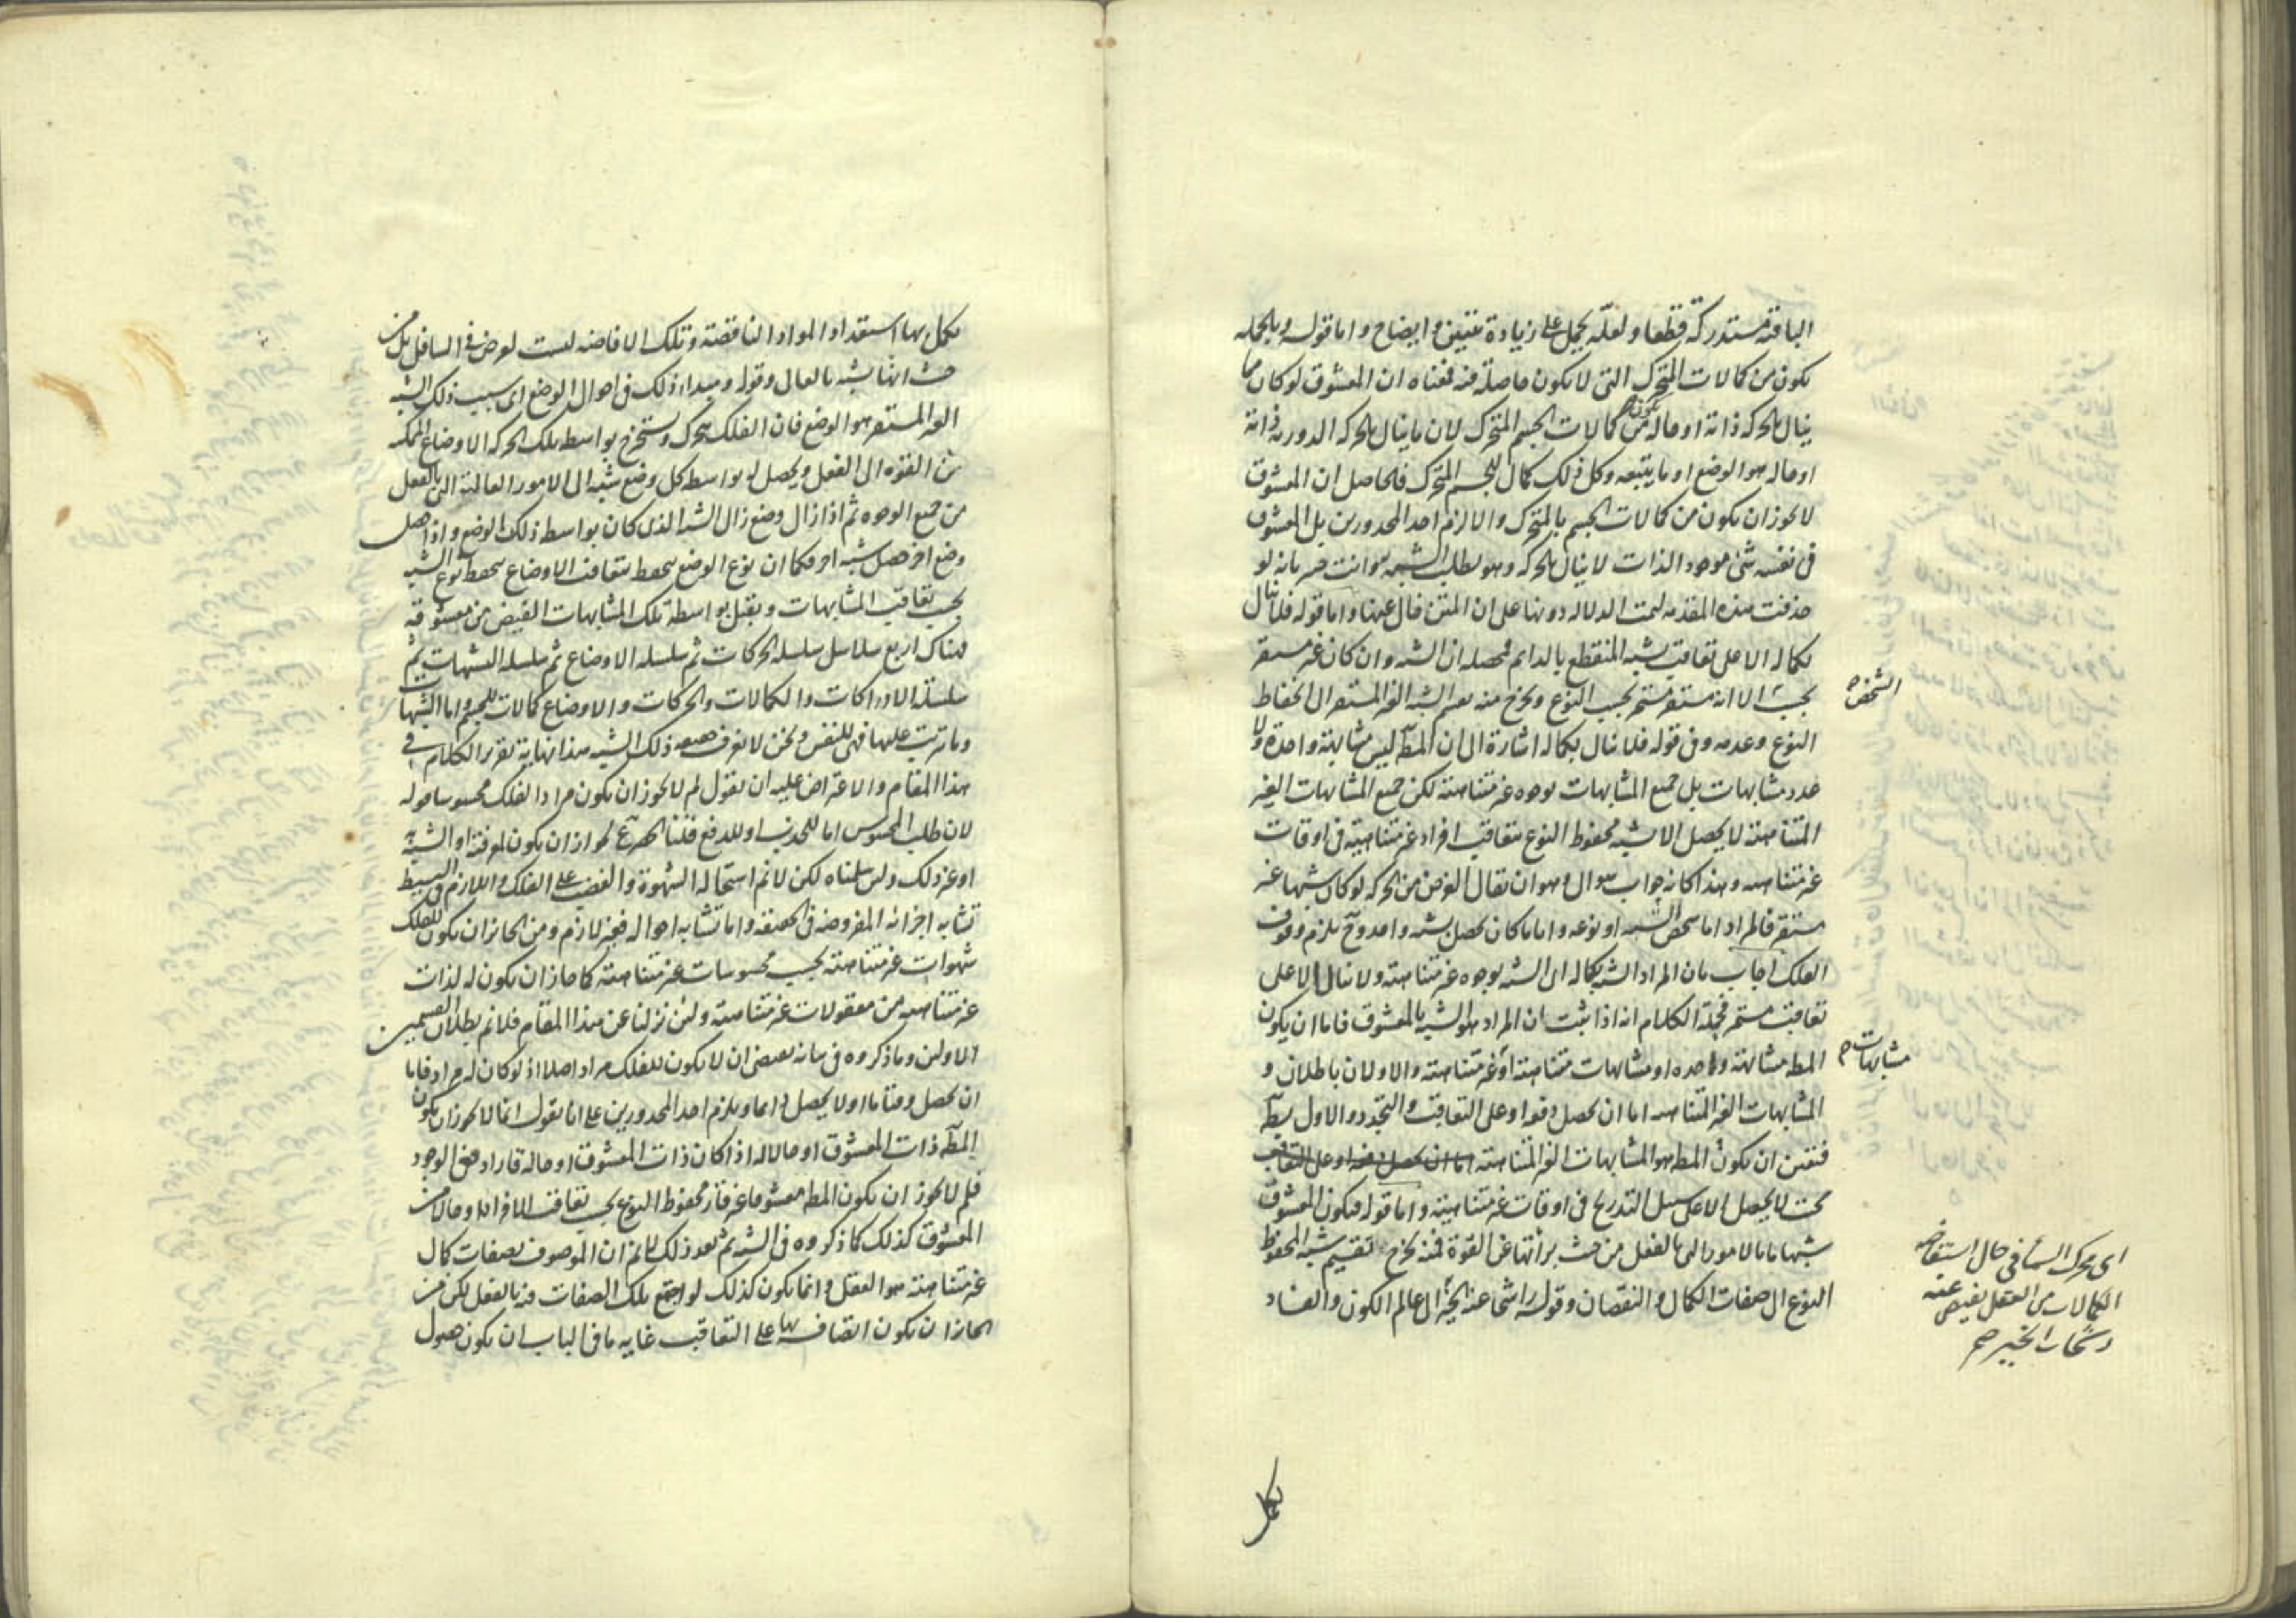 الباقية مستدركة قطعا ولعله يحمل على زيادة تبيين وايضاح واما قوله وبالجمله
يكون من كمالات المتحرك التى لا يكون حاصلة فيه فمعناه ان المعشوق لو كان مما
ينال بالحركه ذاته او حاله يكون من كمالات الجسم المتحرك لان ما ينال بالحركه الدوريه ذاته
او حاله هو الوضع او ما يتبعه وكل ذلك كمال للجسم المتحرك فالحاصل ان المعشوق
لا يجوز ان يكون من كمالات الجسم المتحرك والا لزم احد المحذورين بل المعشوق
فى نفسه شئ موجود الذات لا ينال بالحركه وهو يطلب التشبه به وانت خبير بانه لو
حذفت هذه المقدمه لتمت الدلاله دونها على ان المتن خال عنها واما قوله فلا ينال
بكماله الا على تعاقب يشبه المنقطع بالدايم فمحصله ان الشبه وان كان غير مستقر
بحسب الا انه مستقر مستمر بحسب النوع ويخرج منه تقسيم الشبه الغير المستقر الى انحفاظ
الشخص صح
النوع وعدمه وفى قوله فلا ينال بكماله اشارة الى ان المط ليس مشابهة واحدة ولا
عدد مشابهات بل جميع المشابهات بوجوه غير متناهية لكن جميع المشابهات الغير
المتناهية لا يحصل الا بشبه محفوظ النوع بتعاقب افراد غير متناهية فى اوقات
غير متناهيه وهذا كانه جواب سوال وهو ان يقال الغرض من الحركه لو كان شبها غير
مستقر فالمراد اما شخص الشبه او نوعه واياما كان يحصل بشبه واحد وح يلزم وقوف
الفلك اجاب بان المراد الشبه بكماله اى الشبه بوجوه غير متناهية ولا ينال الا على
تعاقب مستمر فجملة الكلام انه اذا ثبت ان المراد هو الشبه بالمعشوق فاما ان يكون
المط مشابهة واحده او مشابهات متناهية او غير متناهية والاولان باطلان و
مشابهات صح
المشابهات الغير المتناهيه اما ان يحصل دفعا او على التعاقب والتجدد والاول بط
فتعين ان يكون المط هو المشابهات الغير المتناهية اما ان يحصل دفعه او على التعاقب
بحيث لا يحصل الا على سبيل التدريج فى اوقات غير متناهية واما قوله فيكون المعشوق
شبها ما بالامور التى بالفعل من حيث برأتها عن القوة فمنه يخرج تقسيم شبه المحفوظ
النوع الى صفات الكمال والنقصان وقوله راشحا عنه الخير الى عالم الكون والفساد
اى محرك السما فى حال استفاضه
الكمالات من العقل يفيض عنه
رشحات الخير صح
يكمل
يكمل بها استعداد المواد الناقصة وتلك الافاضه ليست لغرض فى السافل بل من
حيث انها تشبه بالعالى وقوله ومبداء ذلك فى احوال الوضع اى سبب ذلك الشبه
الغير المستقر هو الوضع فان الفلك يتحرك ويستخرج بواسطه تلك الحركه الاوضاع الممكنه
من القوه الى الفعل ويحصل له بواسطه كل وضع شبه الى الامور العالية التى بالفعل
من جميع الوجوه ثم اذا زال وضع زال الشبه الذى كان بواسطه ذلك الوضع واذا حصل
وضع اخر حصل شبه اخر فكما ان نوع الوضع ينحفظ بتعاقب الاوضاع ينحفظ نوع الشبه
بحسب تعاقب المشابهات ويقبل بواسطة تلك المشابهات الفيض من معشوقه
فهناك اربع سلاسل سلسله الحركات ثم سلسله الاوضاع ثم سلسله التشبهات ثم
سلسلة الادراكات والكمالات والحركات والاوضاع كمالات للجسم واما التشبهات
وما يترتب عليها فهى للنفس ونحن لا نعرف حقيقه ذلك الشبه هذا نهاية تقرير الكلام فى
هذا المقام والاعتراض عليه ان نقول لم لا يجوز ان يكون مراد الفلك محسوسا قوله
لان طلب المحسوس اما للجذب او للدفع قلنا الحصر مم لجواز ان يكون لمعرفته او الشبه به
او غير ذلك ولئن سلمناه لكن لا نم استحالة الشهوة والغضب على الفلك واللازم فى البسيط
تشابه اجزائه المفروضه فى الحقيقه واما تشابه احواله فغير لازم ومن الجائز ان يكون للفلك
شهوات غير متناهية بحسب محسوسات غير متناهية كما جاز ان يكون له لذات
غير متناهيه من معقولات غير متناهية ولئن نزلنا عن هذا المقام فلا نم بطلان القسمين
الاولين وما ذكروه فى بيانه يقتضى ان لا يكون للفلك مراد اصلا اذ لو كان له مراد فاما
ان يحصل وقتا ما او لا يحصل دايما ويلزم احد المحذورين على انا نقول انما لا يجوز ان يكون
المط ذات المعشوق او حالا له اذا كان ذات المعشوق او حاله قارا دفعى الوجود
فلم لا يجوز ان يكون المط معشوقا غير قار محفوظ النوع بحسب تعاقب الافراد او حالا من
المعشوق كذلك كما ذكروه فى الشبه ثم بعد ذلك لا نم ان الموصوف بصفات كمال
غير متناهية هو العقل وانما يكون كذلك لو اجتمع تلك الصفات فيه بالفعل لكن من
الجائز ان يكون اتصافه بها على التعاقب غايه ما فى الباب ان يكون حصول